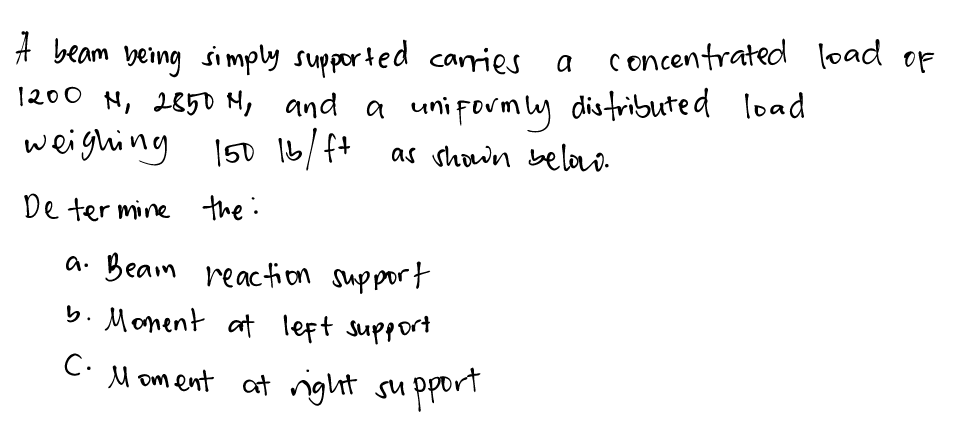 A beam being simply supported carries a concentrated load of
1200 N, 2850 N, and a uniformly distributed load
weighing 150 lb/ft as shown below.
Determine the:
a. Beam reaction support
b. Moment at left support
C. Moment at right support